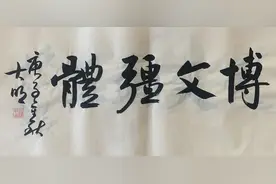 博文疆體
庚子之秋
大明